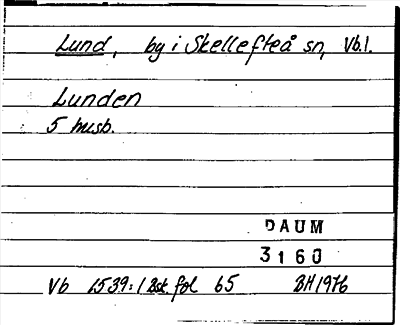 Lund, by i Skellefteå sn, Vb.l.
Lunden
5 husb.
DAUM
3160
Vb 1539:1 Bsk. fol 65 BH 1976